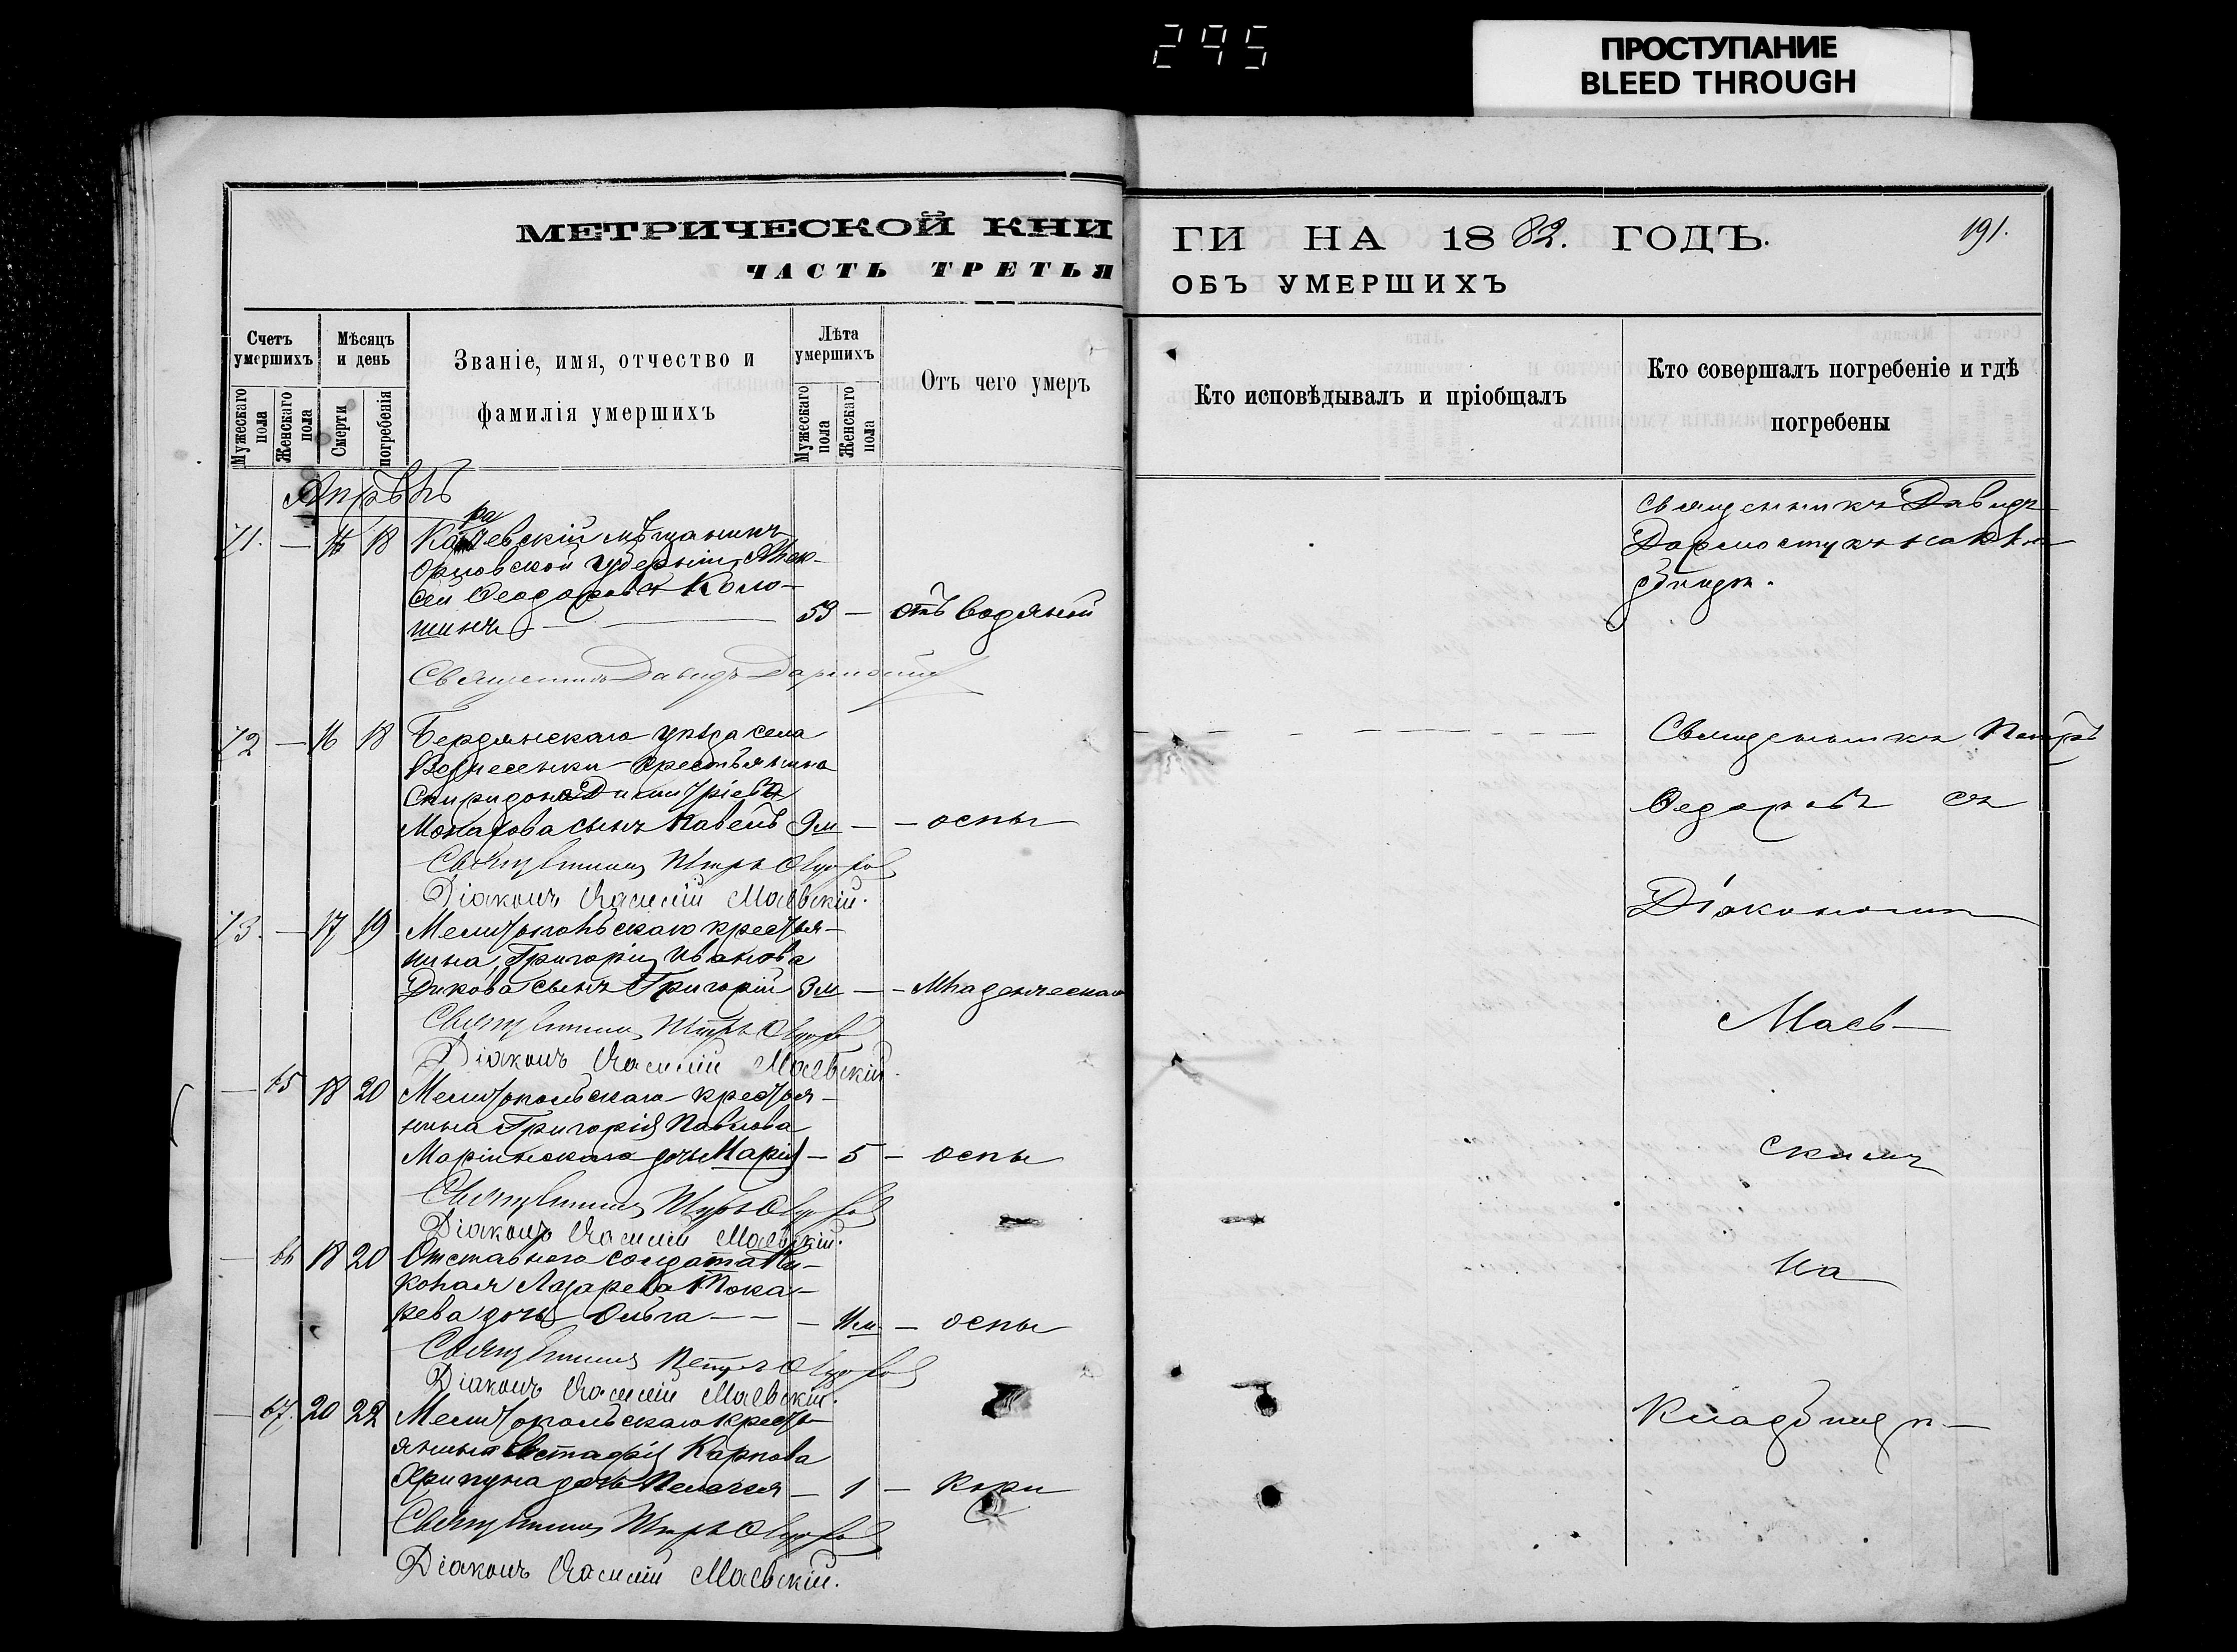 295
ПРОСТУПАНИЕ
BLEED THROUGH
МЕТРИЧЕСКОЙ КНИ
ГИ НА 1882. ГОДЪ.
191.
ЧАСТЬ ТРЕТЬЯ
ОБЪ УМЕРШИХЪ
Счетъ умершихъ
Мужескаго пола
Женскаго пола
Мѣсяцъ и день
Смерти
погребенія
Званіе, имя, отчество и
фамилія умершихъ
Лѣта умершихъ
Мужескаго пола
Женскаго пола
Отъ чего умеръ
Кто исповѣдывалъ и пріобщалъ
Кто совершалъ погребеніе и гдѣ
погребены
Апрѣль
71. — 16 18 мѣщанинъ
Орловской губерніи, Алек-
сей Феодоровъ Коло-
шинъ — 53 — отъ водяной
Священникъ Давидъ
Священникъ Давидъ
72 — 16 18 Бердянскаго уѣзда села
Вознесенки крестьянина
Спиридона Димитріева
сынъ Павелъ 9м — — оспы
Священникъ Петръ
Федоровъ съ
Священникъ Петръ Федоров
Діаконъ Василій Маевскій.
Діакономъ
73. — 17 19 Мелитопольскаго крестья-
нина, Григорія Иванова
Дикова сынъ Григорій 3м — — Младенческая
Маев-
Священникъ Петръ Федоров
Діаконъ Василій Маевскій.
— 65 18 20 Мелитопольскаго крестья-
нина Григорія Павлова
Маріинскаго дочь Марія — 5 — оспы
скимъ
Священникъ Петръ Федоров
Діаконъ Василій Маевскій.
— 66 18 20 Отставного солдата Ни-
колая Лазарева Тока-
рева дочь Ольга — — — 11м — оспы
на
Священникъ Петръ Федоров
Діаконъ Василій Маевскій.
— 67. 20 22 Мелитопольскаго кресть-
янина Евстафія Карпова
Хрипуна дочь Пелагея — 1 — кори
Кладбищѣ
Священникъ Петръ Федоров
Діаконъ Василій Маевскій.